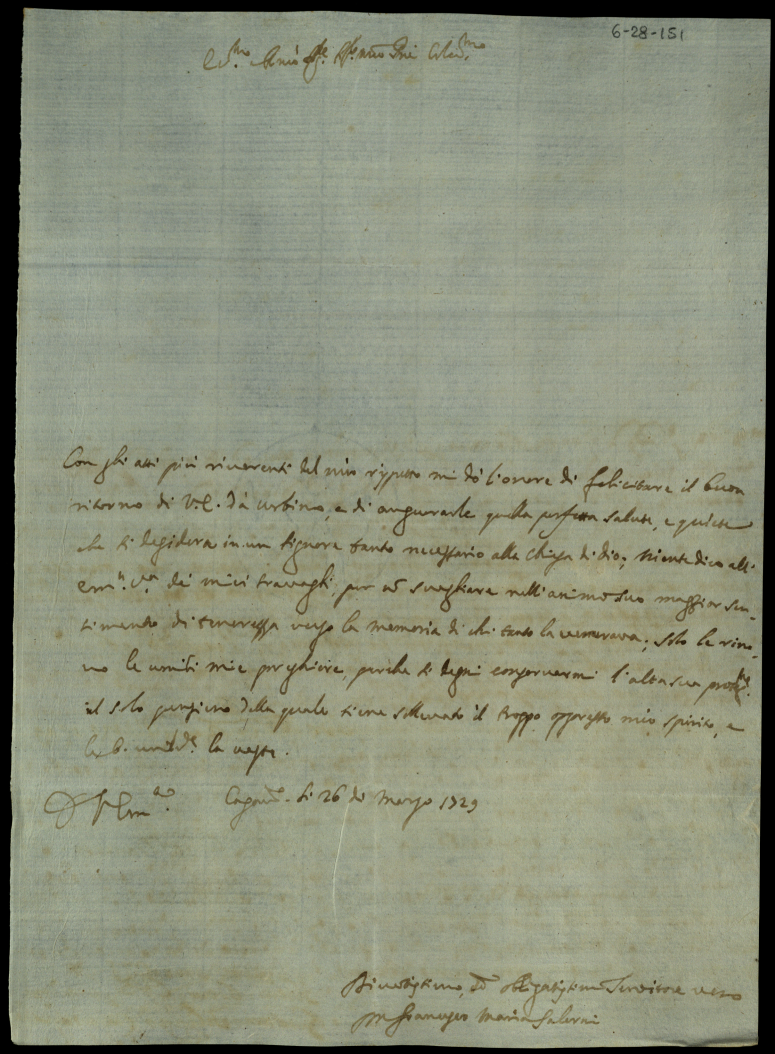 6-28-151
Con gli atti più riverenti del mio rispetto mi dò l'onore di felicitare il buon
ritorno di V.E. dà Urbino, e di augurarle quella perfetta salute, e quiete
che si desidera in un signore tanto necessario alla chiesa di Dio; niente dico all'
Em.ª V.ª dei miei travagli, per nō svegliare nell'animo suo maggior sen-
timento di tenerezza verso la memoria di chi tanto la venerava; solo le rino-
vo le umili mie preghiere, perche si degni conservarmi l'alta sua
il solo pensiero della quale tiene sollevato il troppo oppresso mio spirito, e
le b. la veste.
Di V. Em.ᶻᵃ li 26 di Marzo 1729
Divotissimo, ed obligatissimo Servitore vero
Francesco Maria Salerni